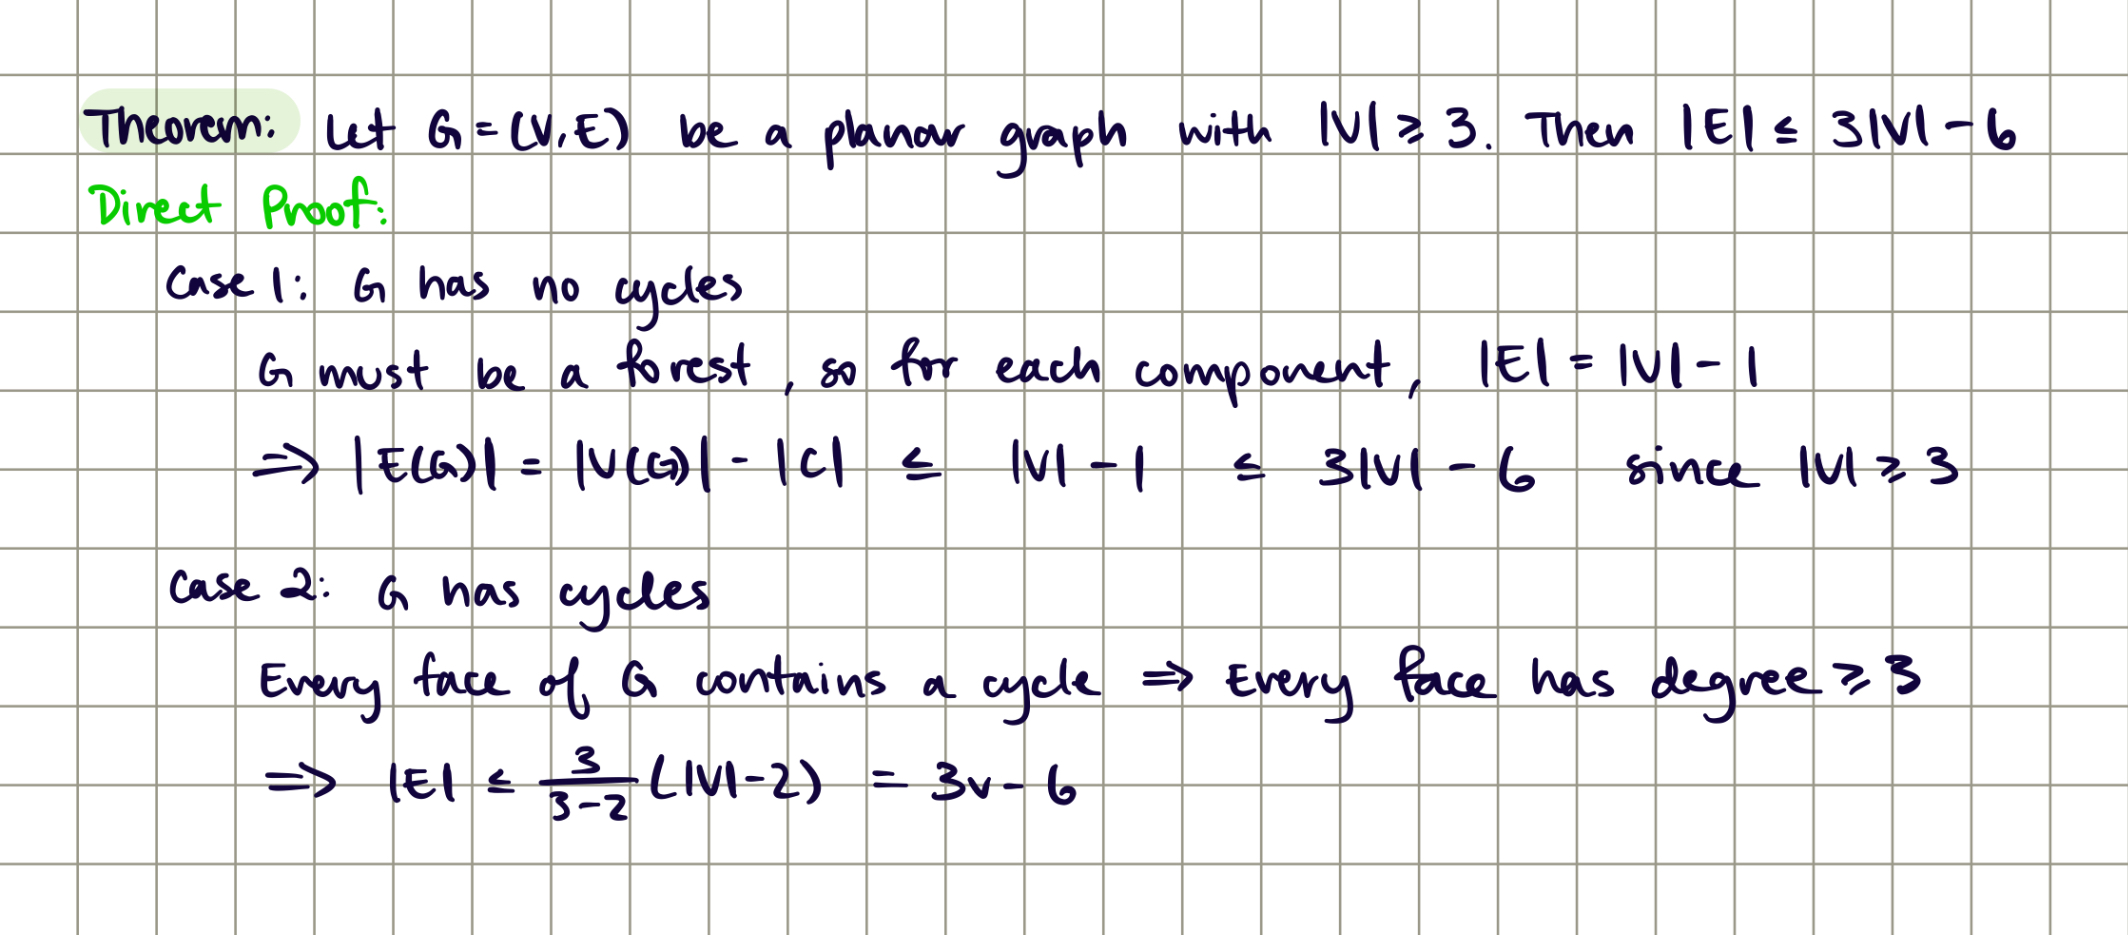 Theorem: Let G = (V, E) be a planar graph with |V| ≥ 3. Then |E| ≤ 3|V| - 6
Direct Proof:
Case 1: G has no cycles
G must be a forest, so for each component, |E| = |V| - 1
⇒ |E(G)| = |V(G)| - |C| ≤ |V| - 1 ≤ 3|V| - 6 since |V| ≥ 3
Case 2: G has cycles
Every face of G contains a cycle ⇒ Every face has degree ≥ 3
⇒ |E| ≤ 3/(3-2) (|V| - 2) = 3v - 6